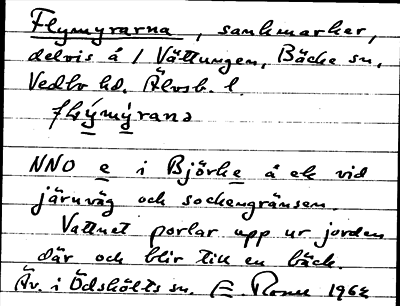 Flymyrarna, sankmarker,
delvis å 1 Vättungen, Bäcke sn,
Vedbo hd. Älvsb. l.
flýmýrana
NNO e i Björke å ek vid
järnväg och sockengränsen.
Vattnet porlar upp ur jorden
där och blir till en bäck.
Äv. i Ödskölts sn. E. 1964